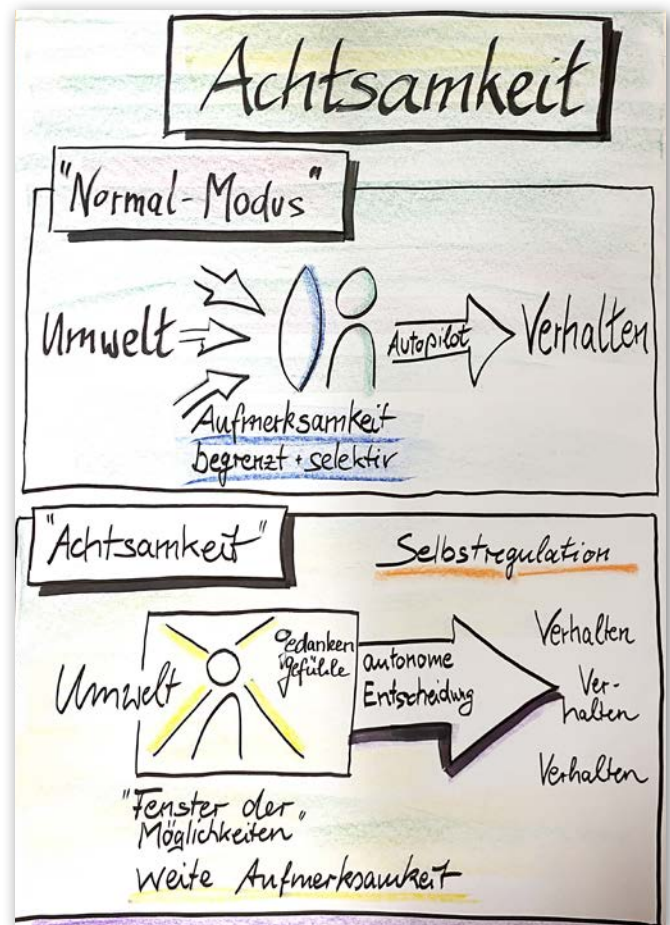 Achtsamkeit
"Normal-Modus"
Umwelt
Autopilot
Verhalten
Aufmerksamkeit
begrenzt + selektiv
"Achtsamkeit"
Selbstregulation
Umwelt
Gedanken
Gefühle
autonome
Entscheidung
Verhalten
Ver-
halten
Verhalten
"Fenster der
Möglichkeiten"
Weite Aufmerksamkeit